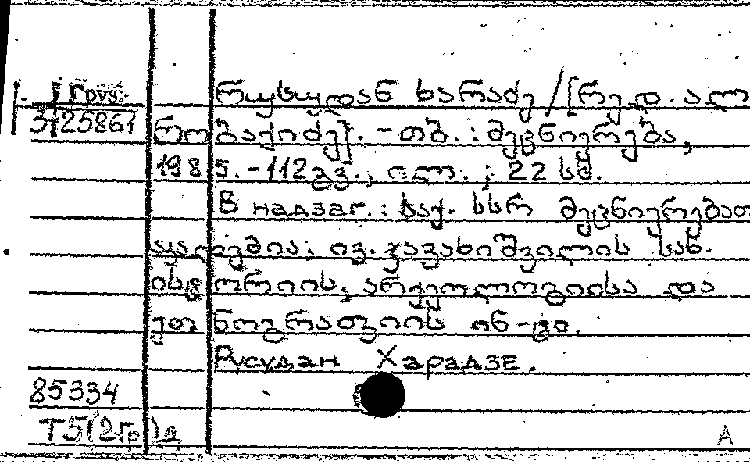 Груз.
3/25861
რუსუდან ხარაძე / [რედ. ალ.
რობაქიძე]. - თბ. : მეცნიერება,
1985. - 112 გვ., ილ. ; 22 სმ.
В надзаг. : საქ. სსრ მეცნიერებათა
აკადემია; ივ. ჯავახიშვილის სახ.
ისტორიის, არქეოლოგიისა და
ეთნოგრაფიის ინ-ტი.
Русудан Харадзе.
85334
Т5(2Гр)д
А